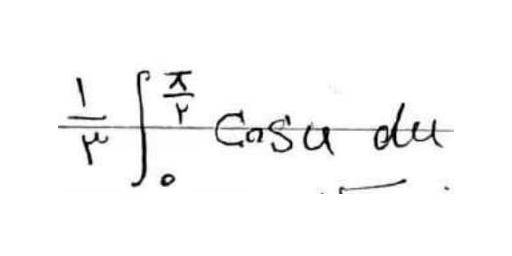 \frac{۱}{۳} \int_{۰}^{\frac{π}{۲}} Cosu du